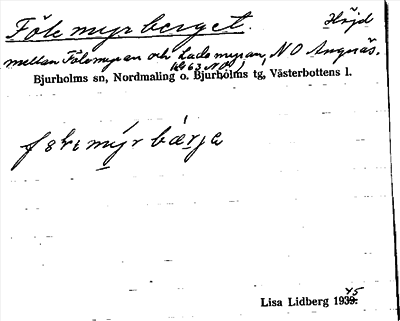 Fölemyrberget. Höjd
mellan Fölemyran och Ladomyran, NO Angnäs.
Bjurholms sn, Nordmaling o. Bjurholms tg, Västerbottens l.
Lisa Lidberg 1945